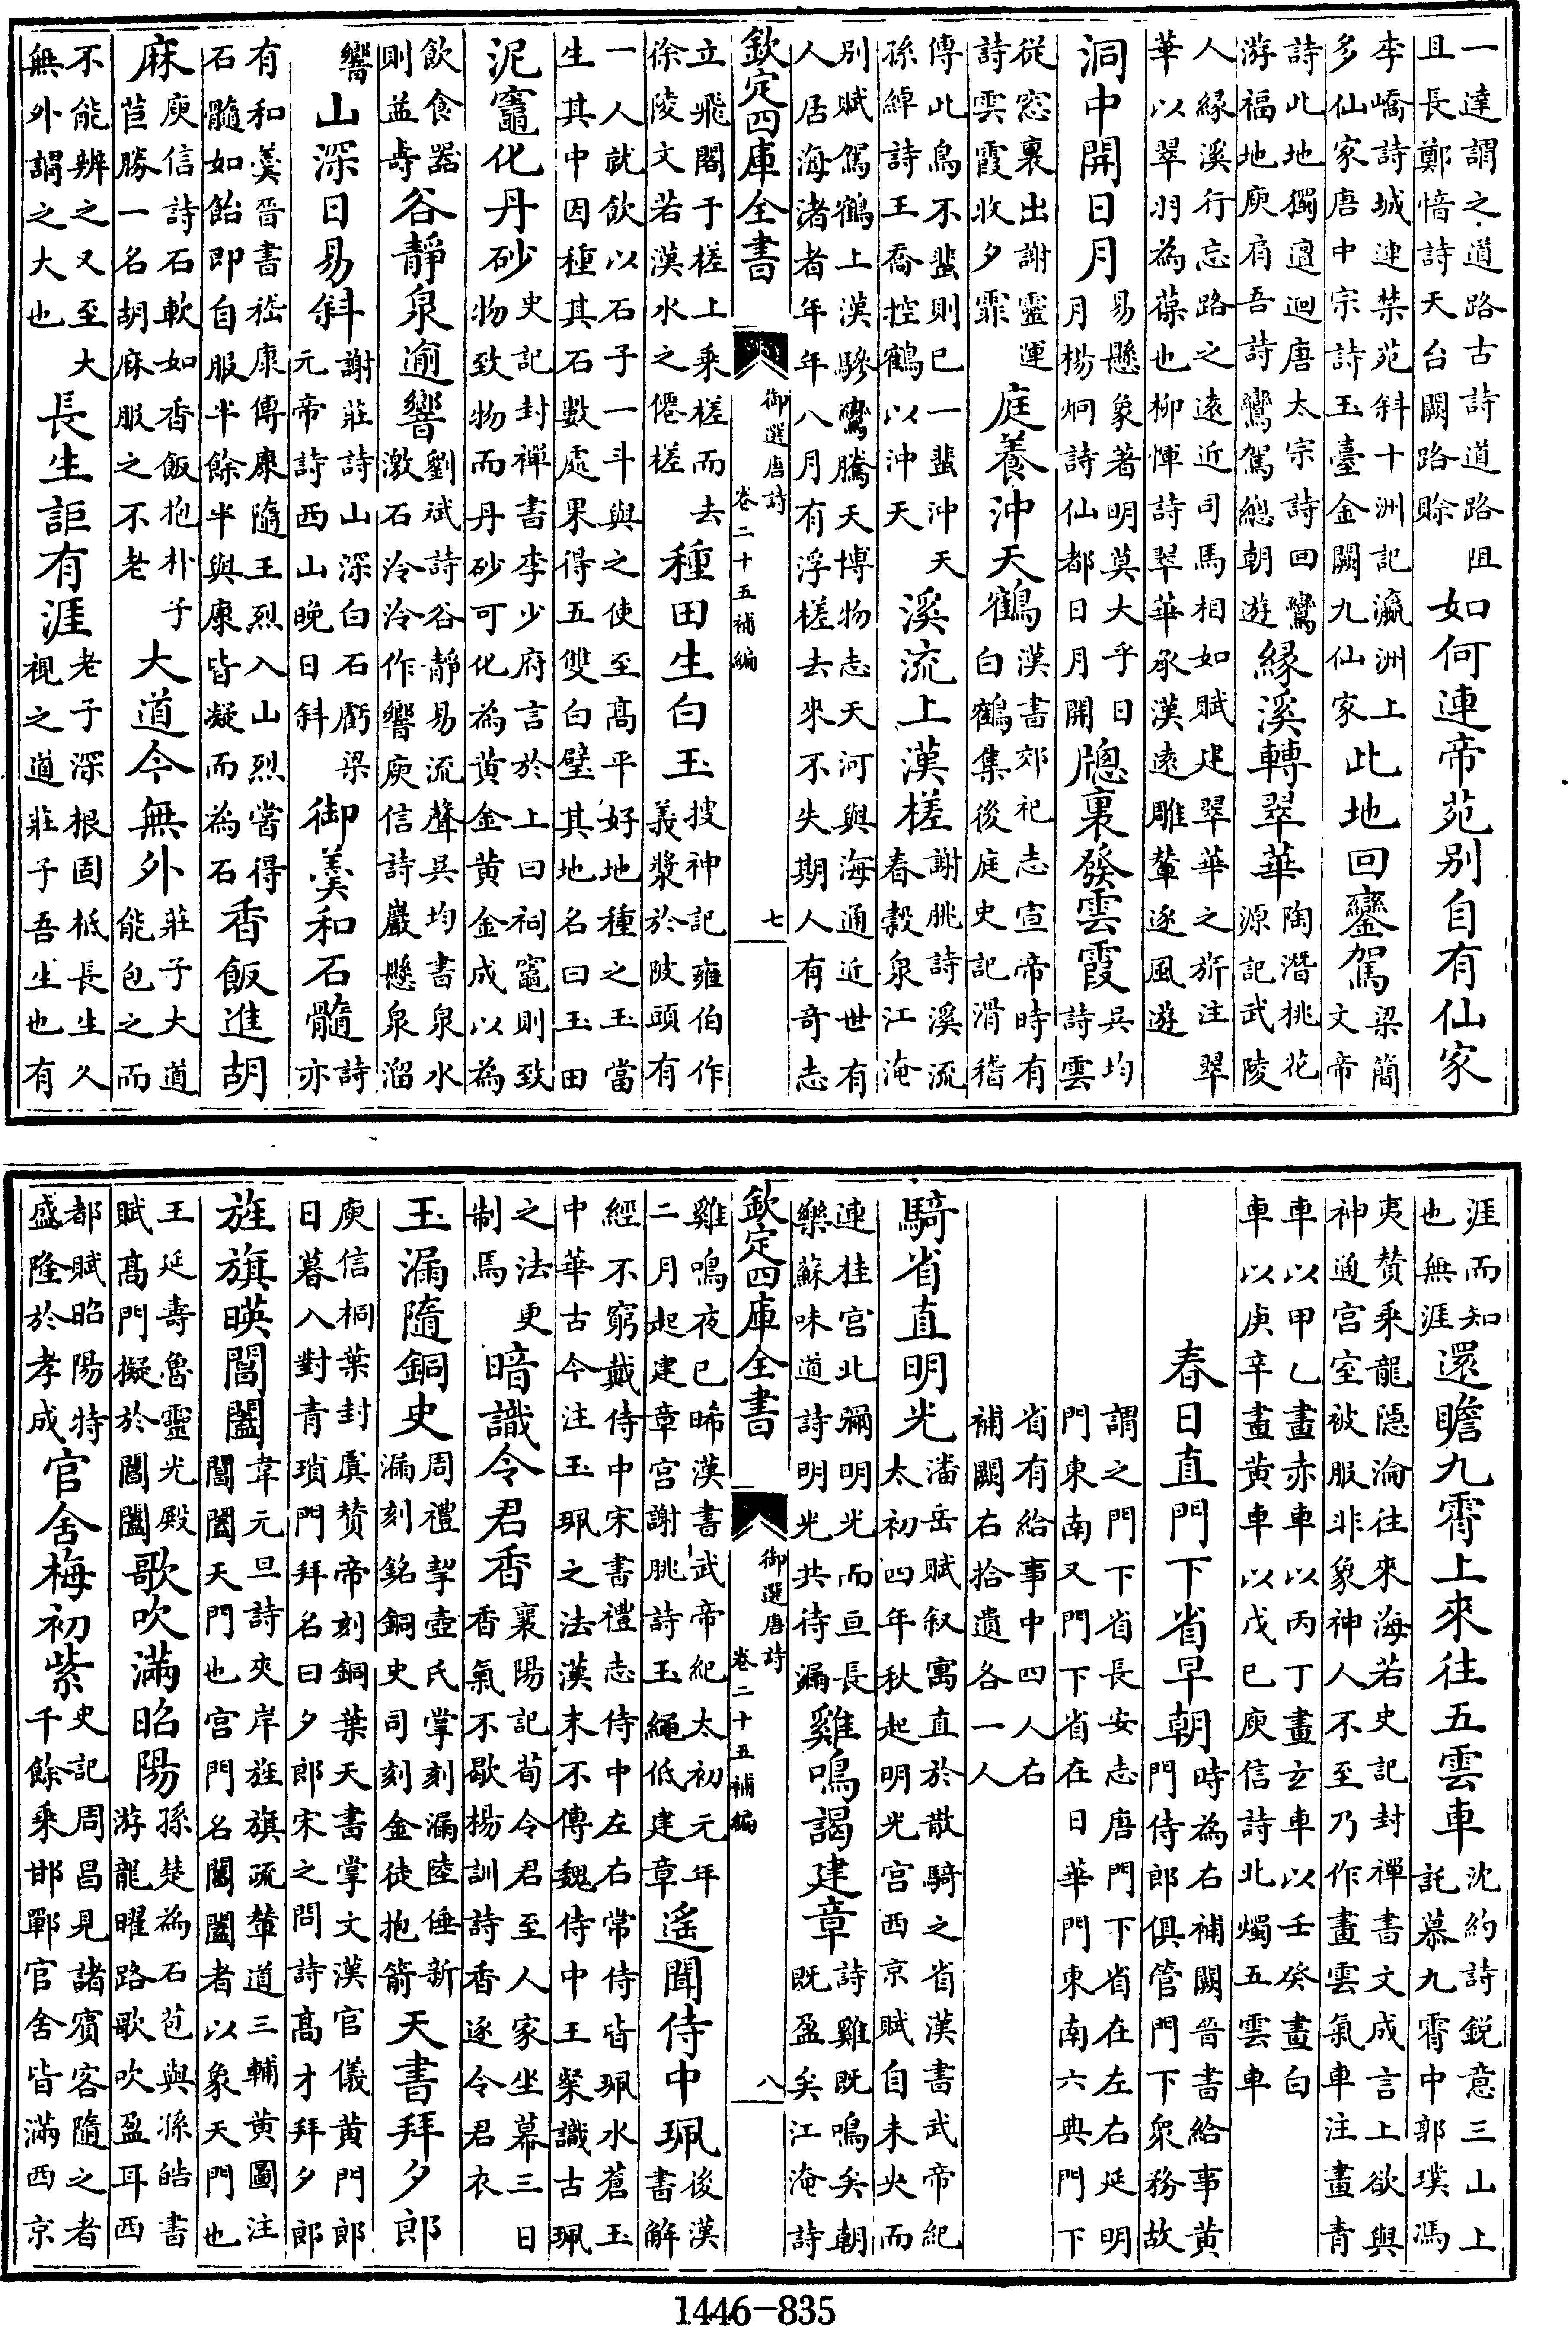 一達謂之道路古詩道路阻
且長鄭愔詩天台闕路賒
如何連帝苑别自有仙家
李嶠詩城連禁苑斜十洲記瀛洲上
多仙家唐中宗詩玉臺金闕九仙家
此地回鑾駕
梁簡
文帝
詩此地獨邅迴唐太宗詩回鸞
游福地庾肩吾詩鸞駕總朝遊
緣溪轉翠華
陶潛桃花
源記武陵
人緣溪行忘路之遠近司馬相如賦建翠華之旂注翠
華以翠羽為葆也柳惲詩翠華承漢遠雕輦逐風遊
洞中開日月
易懸象著明莫大乎日
月楊炯詩仙都日月開
牕裏發雲霞
吳均
詩雲
從窓裏出謝靈運
詩雲霞收夕霏
庭養沖天鶴
漢書郊祀志宣帝時有
白鶴集後庭史記滑稽
傳此鳥不蜚則已一蜚沖天
孫綽詩王喬控鶴以沖天
溪流上漢槎
謝朓詩溪流
春穀泉江淹
别賦駕鶴上漢驂鸞騰天博物志天河與海通近世有
人居海渚者年年八月有浮槎去來不失期人有奇志
欽定四庫全書
御選唐詩
卷二十五補編
七
立飛閣于槎上乘槎而去
徐陵文若漢水之僊槎
種田生白玉
搜神記雍伯作
義漿於陂頭有
一人就飲以石子一斗與之使至高平好地種之玉當
生其中因種其石數處果得五雙白璧其地名曰玉田
泥竈化丹砂
史記封禪書李少府言於上曰祠竈則致
物致物而丹砂可化為黄金黄金成以為
飲食器
則益壽
谷靜泉逾響
劉斌詩谷靜易流聲吳均書泉水
激石泠泠作響庾信詩巖懸泉溜
響
山深日易斜
謝莊詩山深白石虧梁
元帝詩西山晚日斜
御羹和石髓
詩
亦
有和羹晉書嵇康傳康隨王烈入山烈嘗得
石髓如飴即自服半餘半與康皆凝而為石
香飯進胡
麻
庾信詩石軟如香飯抱朴子
苣勝一名胡麻服之不老
大道今無外
莊子大道
能包之而
不能辨之又至大
無外謂之大也
長生詎有涯
老子深根固柢長生久
視之道莊子吾生也有
涯而知
也無涯
還瞻九霄上來往五雲車
沈約詩鋭意三山上
託慕九霄中郭璞馮
夷贊乘龍隱淪往來海若史記封禪書文成言上欲與
神通宫室被服非象神人不至乃作畫雲氣車注畫青
車以甲乙畫赤車以丙丁畫玄車以壬癸畫白
車以庚辛畫黄車以戊己庾信詩北燭五雲車
春日直門下省早朝
時為右補闕晉書給事黄
門侍郎俱管門下衆務故
謂之門下省長安志唐門下省在左右延明
門東南又門下省在日華門東南六典門下
省有給事中四人右
補闕右拾遺各一人
騎省直明光
潘岳賦叙寓直於散騎之省漢書武帝紀
太初四年秋起明光宫西京賦自未央而
連桂宫北彌明光而亘長
樂蘇味道詩明光共待漏
雞鳴謁建章
詩雞既鳴矣朝
既盈矣江淹詩
雞鳴夜已晞漢書武帝紀太初元年
二月起建章宫謝朓詩玉繩低建章
遙聞侍中珮
後漢
書解
經不窮戴侍中宋書禮志侍中左右常侍皆珮水蒼玉
中華古今注玉珮之法漢末不傳魏侍中王粲識古珮
之法更
制馬
暗識令君香
襄陽記荀令君至人家坐幕三日
香氣不歇楊訓詩香逐令君衣
玉漏隨銅史
周禮挈壺氏掌刻漏陸倕新
漏刻銘銅史司刻金徒抱箭
天書拜夕郎
庾信桐葉封虞贊帝刻銅葉天書掌文漢官儀黄門郎
日暮入對青瑣門拜名曰夕郎宋之問詩高才拜夕郎
旌旗暎閶闔
韋元旦詩夾岸旌旗疏輦道三輔黄圖注
閶闔天門也宫門名閶闔者以象天門也
王延壽魯靈光殿
賦高門擬於閶闔
歌吹滿昭陽
孫楚為石苞與孫皓書
游龍曜路歌吹盈耳西
都賦昭陽特
盛隆於孝成
官舍梅初紫
史記周昌見諸賓客隨之者
千餘乘邯鄲官舍皆滿西京
欽定四庫全書
御選唐詩
卷二十五補編
八
1446—835